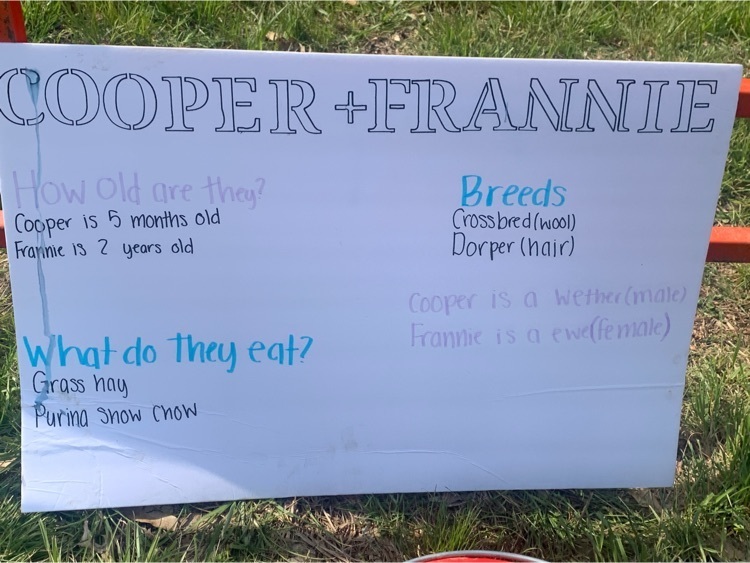 COOPER + FRANNIE
How old are they?
Cooper is 5 months old
Frannie is 2 years old
Breeds
Crossbred (wool)
Dorper (hair)
Cooper is a wether (male)
Frannie is a ewe (female)
What do they eat?
Grass hay
Purina Show Chow